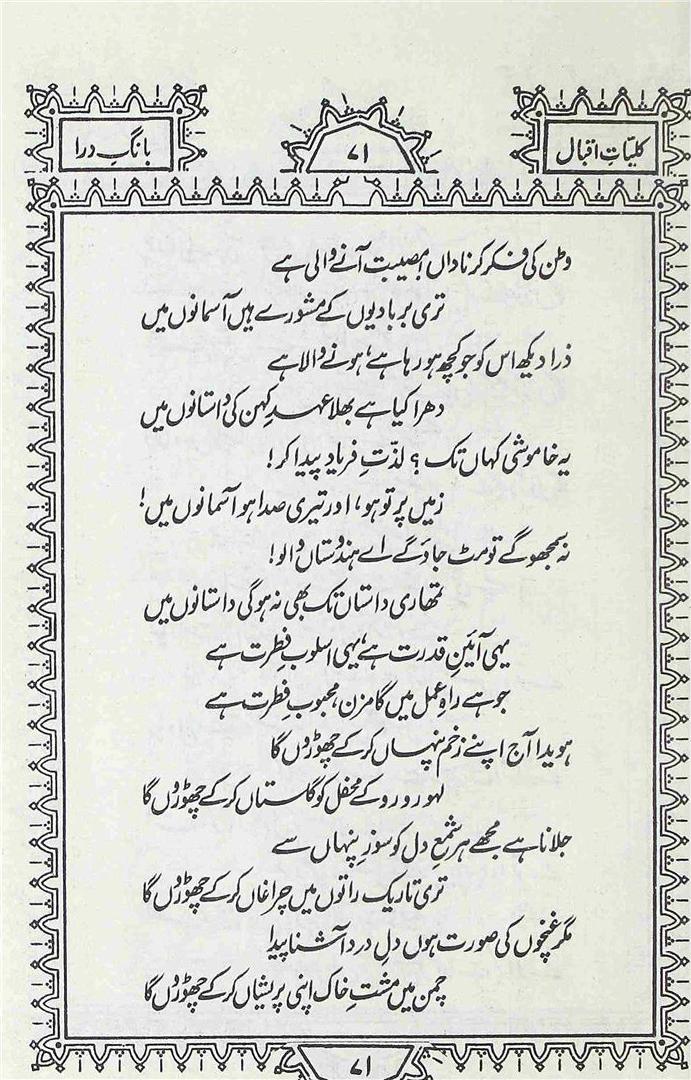 کلیاتِ اقبال
۷۱
بانگِ درا
وطن کی فکر کر ناداں! مصیبت آنے والی ہے
تری بربادیوں کے مشورے ہیں آسمانوں میں
ذرا دیکھ اس کو جو کچھ ہو رہا ہے، ہونے والا ہے
دھرا کیا ہے بھلا عہدِ کہن کی داستانوں میں
یہ خاموشی کہاں تک؟ لذّتِ فریاد پیدا کر!
زمیں پر تو ہو، اور تیری صدا ہو آسمانوں میں!
نہ سمجھو گے تو مٹ جاؤ گے اے ہندوستاں والو!
تمھاری داستاں تک بھی نہ ہوگی داستانوں میں
یہی آئینِ قدرت ہے، یہی اسلوبِ فطرت ہے
جو ہے راہِ عمل میں گامزن، محبوبِ فطرت ہے
ہویدا آج اپنے زخمِ پنہاں کر کے چھوڑوں گا
لہو رو رو کے محفل کو گلستاں کر کے چھوڑوں گا
جلانا ہے مجھے ہر شمعِ دل کو سوزِ پنہاں سے
تری تاریک راتوں میں چراغاں کر کے چھوڑوں گا
مگر غنچوں کی صورت ہوں دلِ درد آشنا پیدا
چمن میں مشتِ خاک اپنی پریشاں کر کے چھوڑوں گا
۷۱